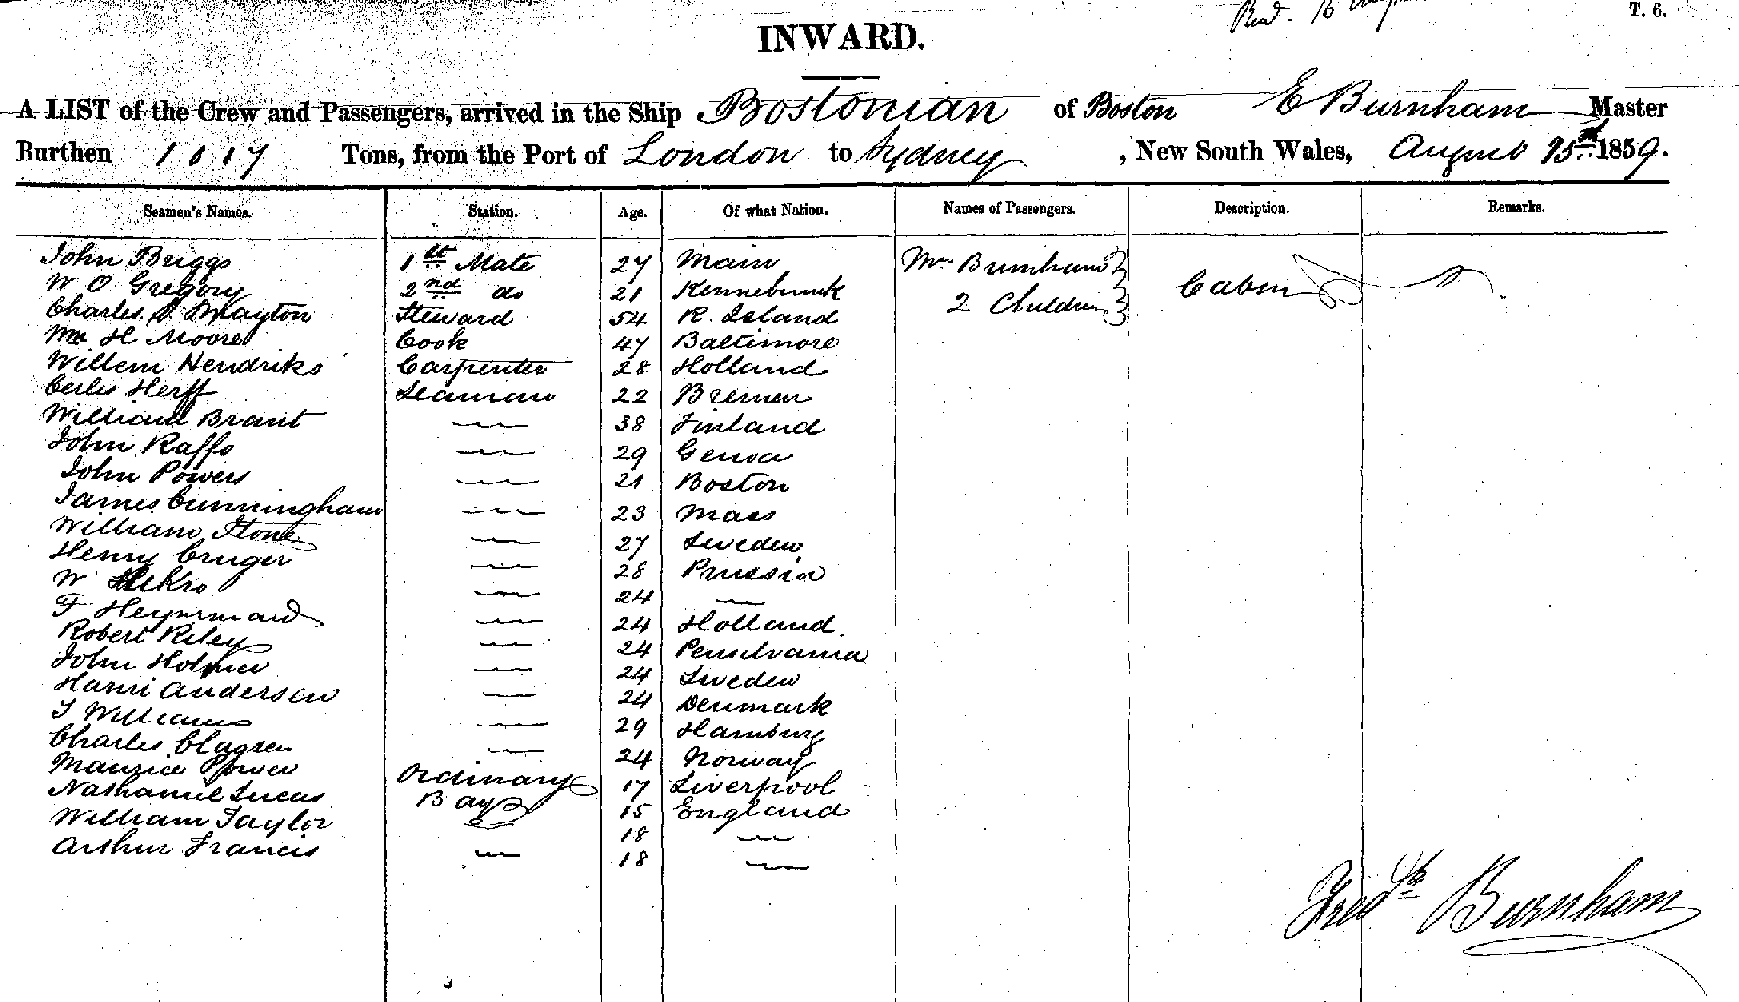 T. 6.
INWARD.
A LIST of the Crew and Passengers, arrived in the Ship Bostonian of Boston E Burnham Master
Burthen 1017 Tons, from the Port of London to Sydney, New South Wales, August 15st 1859.
Seamen's Names. Station. Age. Of what Nation. Names of Passengers. Description. Remarks.
John Briggs 1st Mate 27 Main Mrs Burnham Cabin
W O Gregory 2nd do 21 Kennebunk 2 Children
Charles Mayton Steward 54 R. Island
Wm H Moore Cook 47 Baltimore
Willem Hendriks Carpenter 28 Holland
Herff Seaman 22 Bremen
William Brant — 38 Finland
John Raffo — 29 Genoa
John Powers — 21 Boston
James Cunningham — 23 Mass
William Stone — 27 Sweden
Henry Cruger — 28 Prussia
W — 24 —
F — 24 Holland.
Robert Riley — 24 Pensilvania
John Holmer — 24 Sweden
Hanri Andersen — 24 Denmark
J Williams — 29 Hamburg
Charles — 24 Norway
Maurice Power Ordinary 17 Liverpool
Nathaniel Lucas Boys 15 England
William Taylor 18 —
Arthur Francis — 18 —
Fredk Burnham